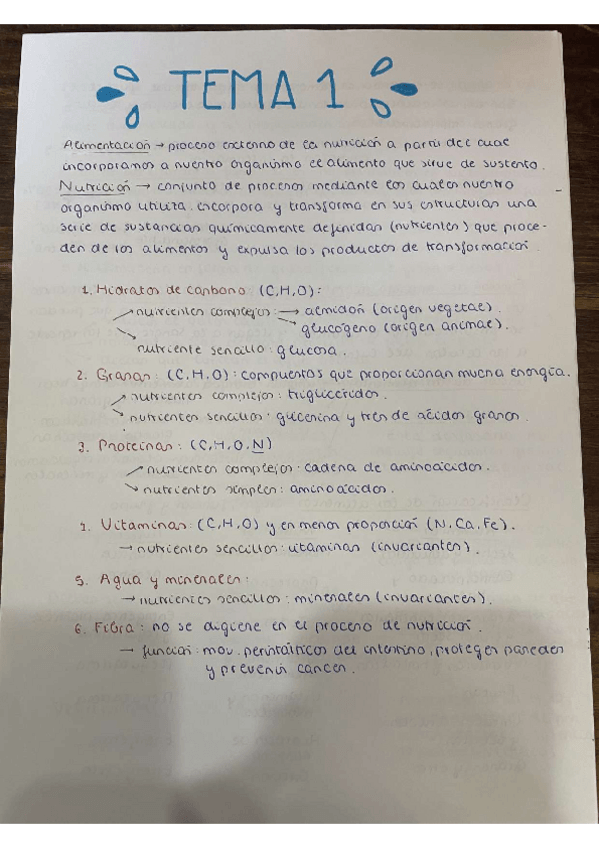 TEMA 1
Alimentación → proceso externo de la nutrición a partir del cual
incorporamos a nuestro organismo el alimento que sirve de sustento.
Nutrición → conjunto de procesos mediante los cuales nuestro
organismo utiliza, incorpora y transforma en sus estructuras una
serie de sustancias químicamente definidas (nutrientes) que proce-
den de los alimentos y expulsa los productos de transformación.
1. Hidratos de carbono: (C,H,O):
→ nutrientes complejos: → almidón (origen vegetal).
→ glucógeno (origen animal).
→ nutriente sencillo: glucosa.
2. Grasas: (C,H,O): compuestos que proporcionan mucha energía.
→ nutrientes complejos: triglicéridos.
→ nutrientes sencillos: glicerina y tres de ácidos grasos.
3. Proteínas: (C,H,O,N)
→ nutrientes complejos: cadena de aminoácidos.
→ nutrientes simples: aminoácidos.
4. Vitaminas: (C,H,O) y en menos proporción (N,Ca,Fe).
→ nutrientes sencillos: vitaminas (invariantes).
5. Agua y minerales:
→ nutrientes sencillos: minerales (invariantes).
6. Fibra: no se digiere en el proceso de nutrición.
→ función: mov. peristálticos del intestino, proteger paredes
y prevenir cáncer.